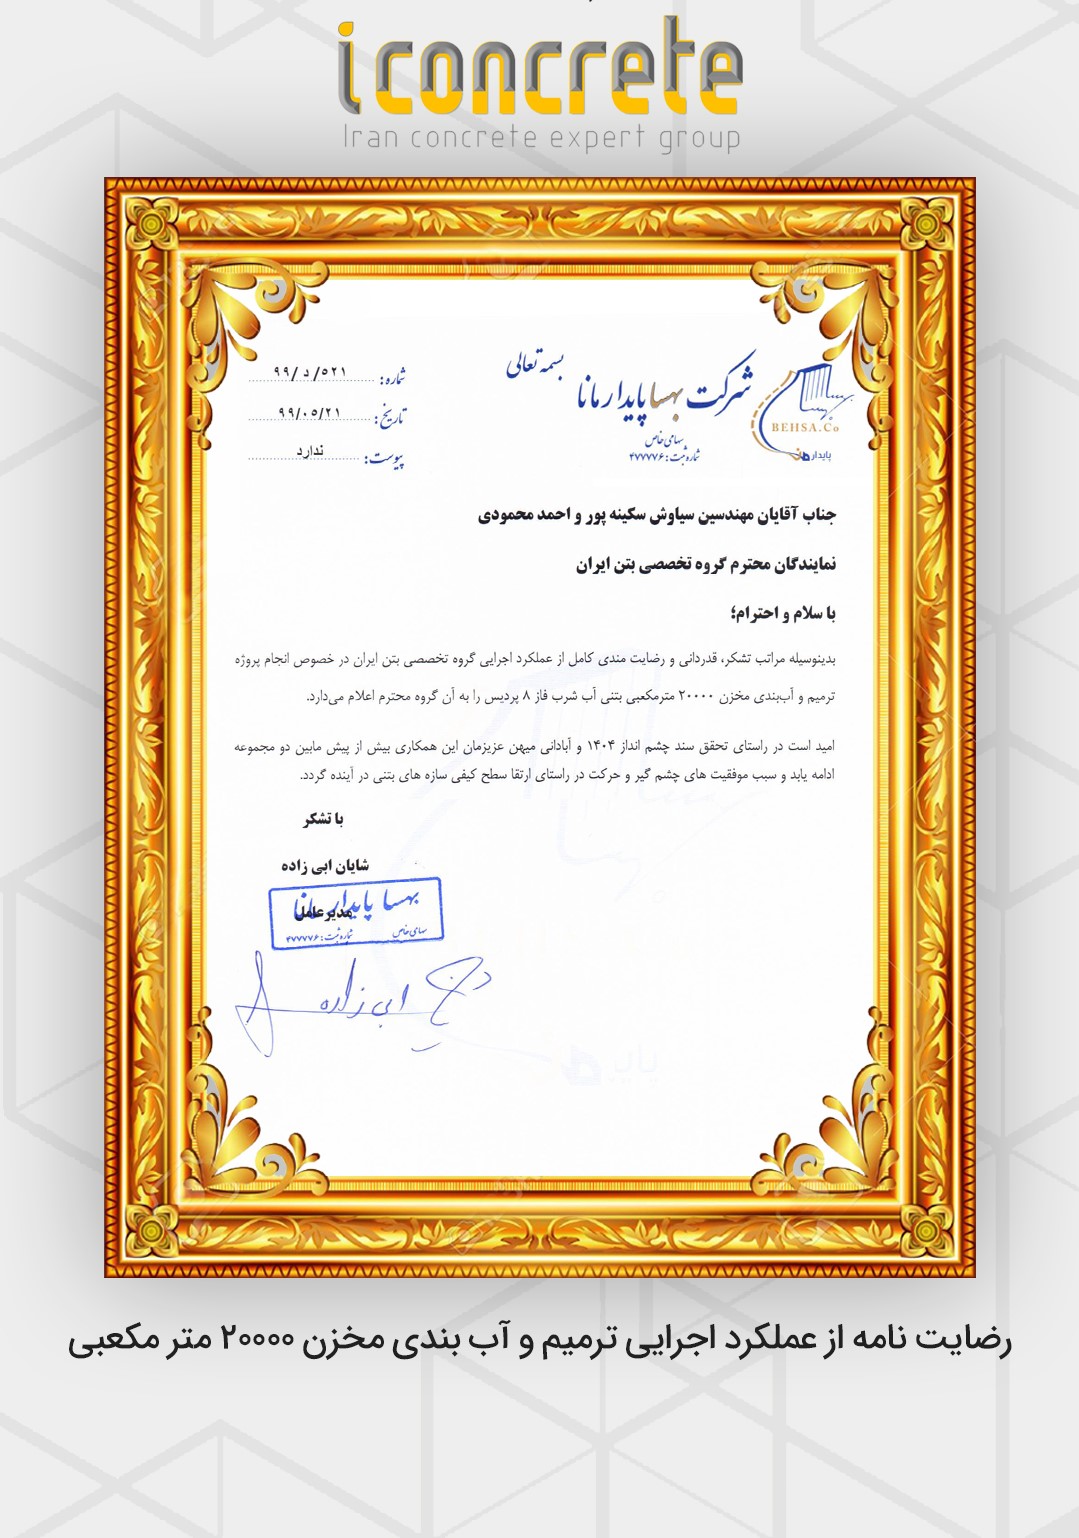 iconcrete
Iran concrete expert group
بسمه تعالی
شرکت بهسا پایدار مانا
سهامی خاص
شماره ثبت: ۴۷۷۷۷۶
BEHSA.Co
پایدار
شماره: ۵۲۱/د/۹۹
تاریخ: ۹۹/۰۵/۲۱
پیوست: ندارد
جناب آقایان مهندسین سیاوش سکینه پور و احمد محمودی
نمایندگان محترم گروه تخصصی بتن ایران
با سلام و احترام؛
بدینوسیله مراتب تشکر، قدردانی و رضایت مندی کامل از عملکرد اجرایی گروه تخصصی بتن ایران در خصوص انجام پروژه
ترمیم و آب‌بندی مخزن ۲۰۰۰۰ مترمکعبی بتنی آب شرب فاز ۸ پردیس را به آن گروه محترم اعلام می‌دارد.
امید است در راستای تحقق سند چشم انداز ۱۴۰۴ و آبادانی میهن عزیزمان این همکاری بیش از پیش مابین دو مجموعه
ادامه یابد و سبب موفقیت های چشم گیر و حرکت در راستای ارتقا سطح کیفی سازه های بتنی در آینده گردد.
با تشکر
شایان ابی زاده
مدیرعامل
بهسا پایدار مانا
سهامی خاص شماره ثبت: ۴۷۷۷۷۶
ابی زاده
رضایت نامه از عملکرد اجرایی ترمیم و آب بندی مخزن ۲۰۰۰۰ متر مکعبی